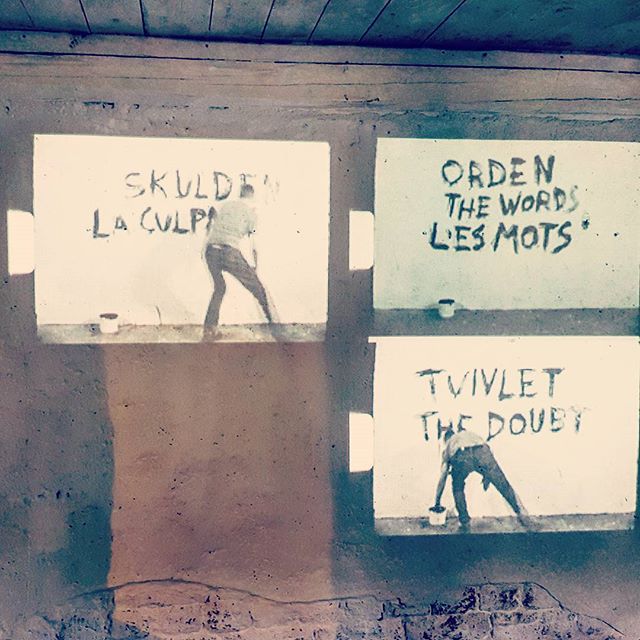 SKULDEN
LA CULP
ORDEN
THE WORDS
LES MOTS
TVIVLET
THE DOUBT